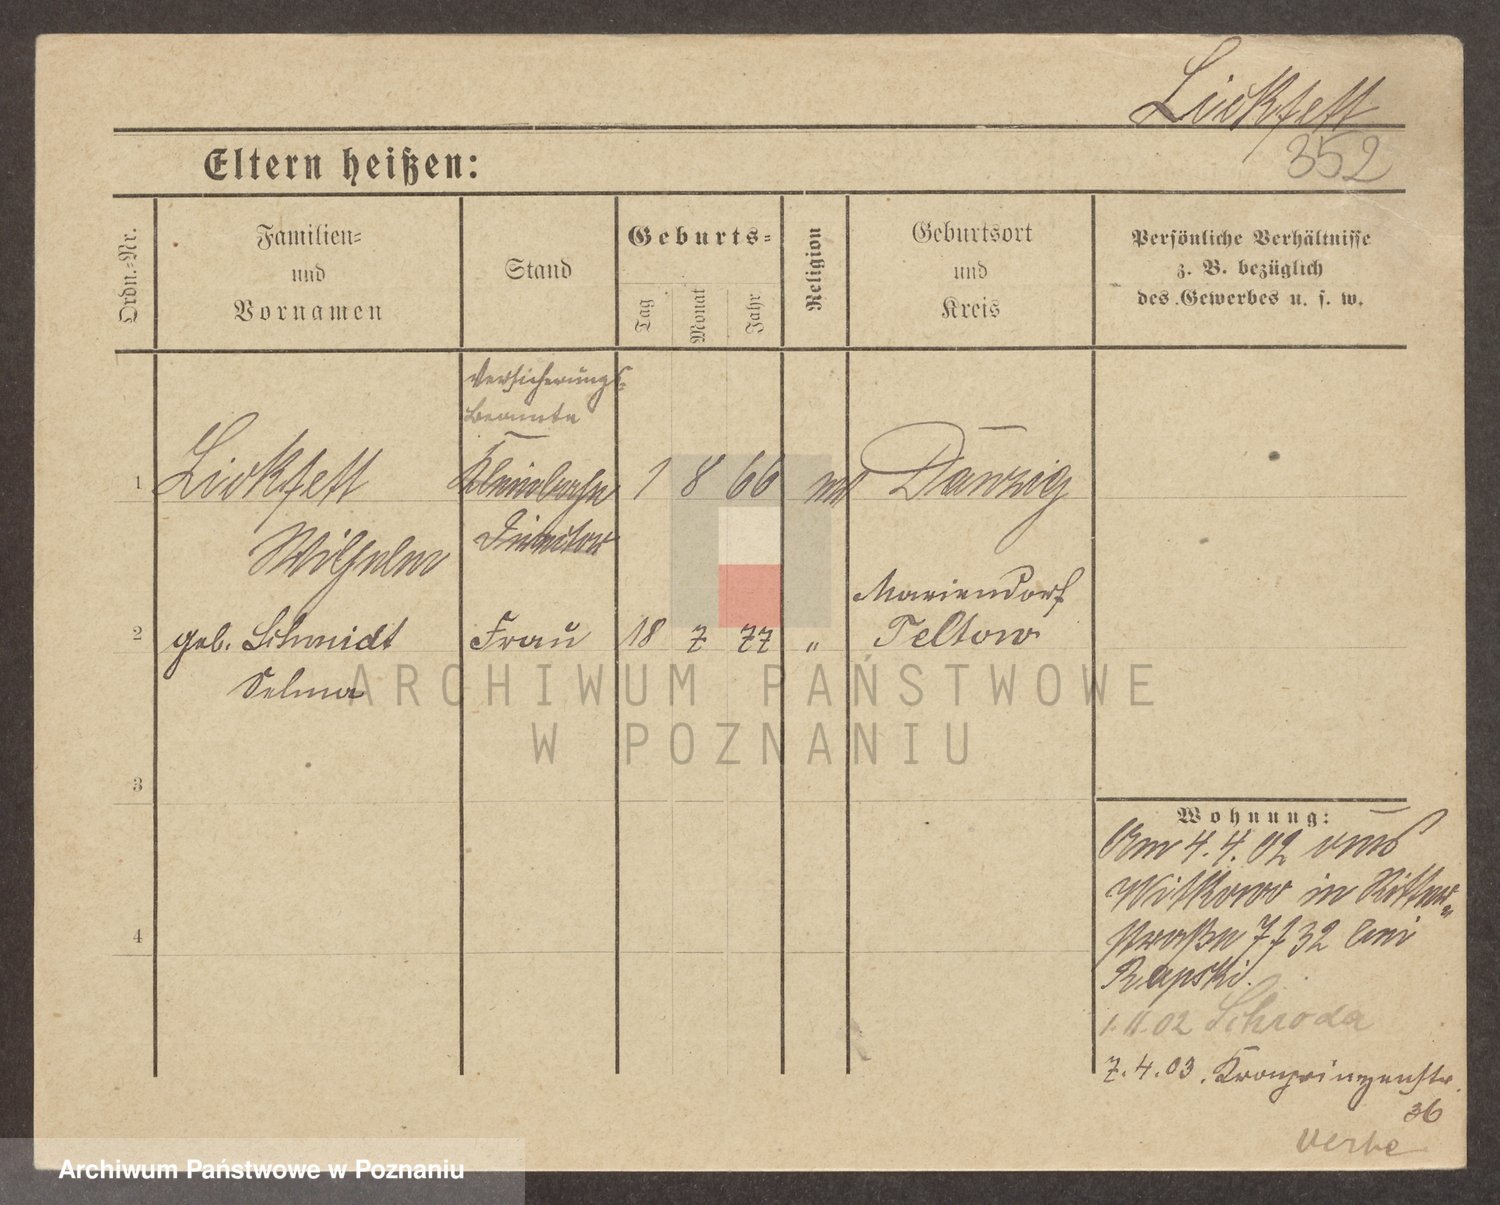 Lickfett
352
Eltern heißen:
Ordn.-Nr.
Familien-
und
Vornamen
Stand
Geburts-
Tag
Monat
Jahr
Religion
Geburtsort
und
Kreis
Persönliche Verhältnisse
z. B. bezüglich
des Gewerbes u. s. w.
Versicherungs-
Beamte
1 Lickfett Kleinbahn 1 8 66 Danzig
Wilhelm Direktor
Mariendorf
2 geb. Schmidt Frau 18 7 77 " Teltow
Selma
ARCHIWUM PAŃSTWOWE
W POZNANIU
3
Wohnung:
Am 4.4.02 aus
Witkowo in Ritter-
straße 32 bei
Rapski.
1.11.02 Schroda
4
7.4.03. Kronprinzenstr.
36
Archiwum Państwowe w Poznaniu